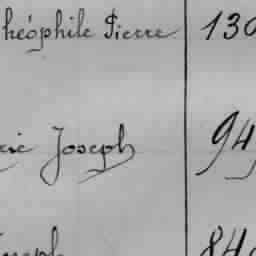 Théophile Pierre 130
Joseph 94
Joseph 840